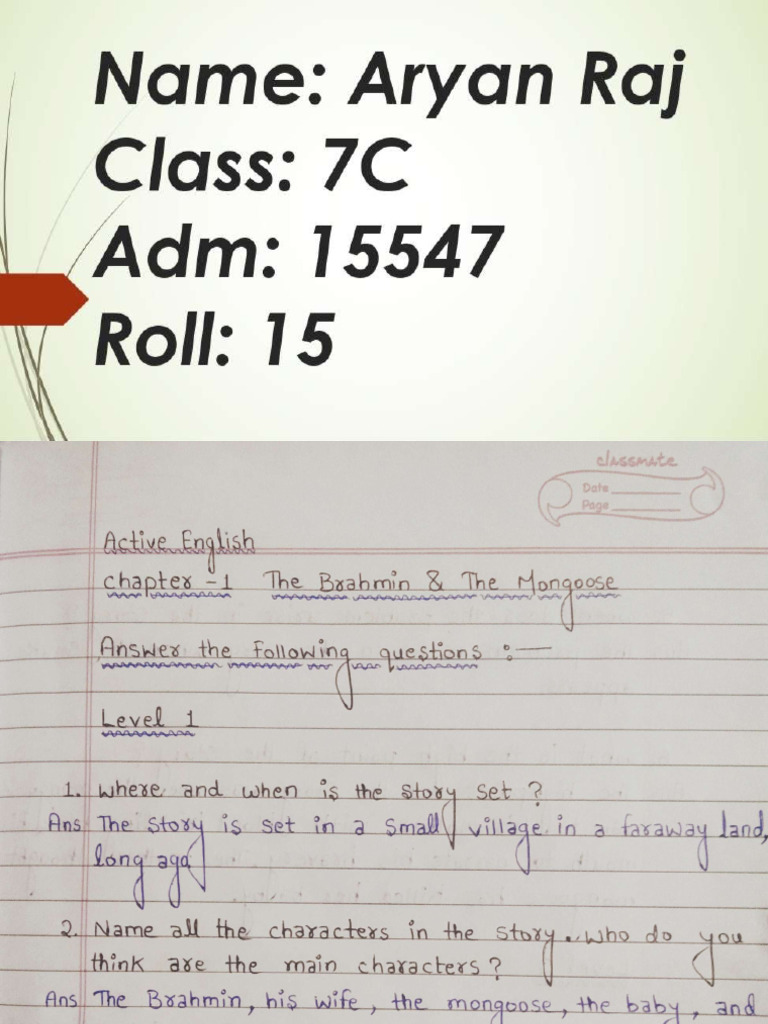 Name: Aryan Raj
Class: 7C
Adm: 15547
Roll: 15
classmate
Date
Page
Active English
chapter -1 The Brahmin & The Mongoose
Answer the following questions :—
Level 1
1. where and when is the story set ?
Ans The story is set in a small village in a faraway land,
long ago
2. Name all the characters in the story. who do you
think are the main characters ?
Ans The Brahmin, his wife, the mongoose, the baby, and